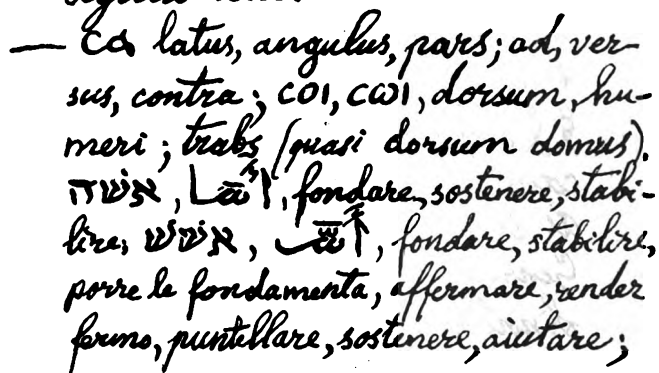 — ⲥⲁ latus, angulus, pars; ad, ver-
sus, contra; ⲥⲟⲓ, ⲥⲱⲓ, dorsum, hu-
meri; trabs (quasi dorsum domus).
אשׁה, fondare, sostenere, stabi-
lire; אשׁשׁ, fondare, stabilire,
porre le fondamenta, affermare, render
fermo, puntellare, sostenere, aiutare;